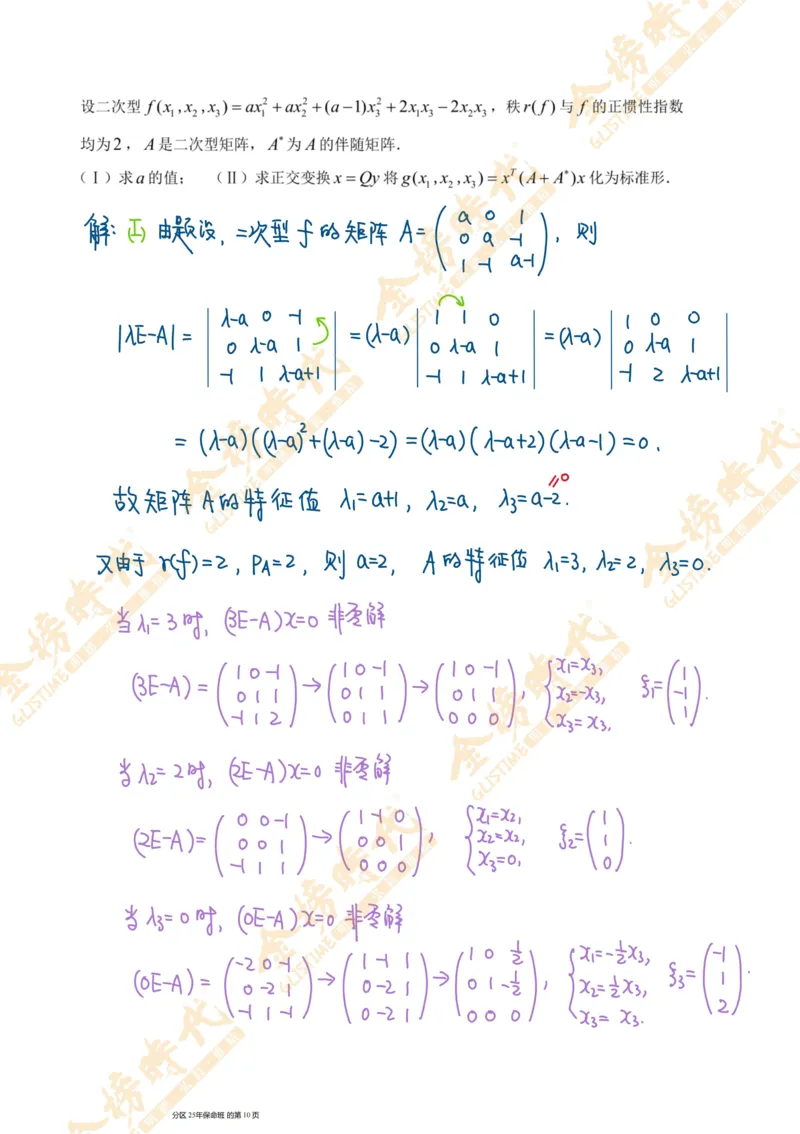 设二次型 f(x₁,x₂,x₃)=ax₁²+ax₂²+(a−1)x₃²+2x₁x₃−2x₂x₃，秩r(f)与 f 的正惯性指数
均为2，A是二次型矩阵，A*为A的伴随矩阵．
（Ⅰ）求a的值； （Ⅱ）求正交变换x=Qy将g(x₁,x₂,x₃)=xᵀ(A+A*)x化为标准形．
解: (Ⅰ) 由题设, 二次型 f 的矩阵 A= (a 0 1; 0 a -1; 1 -1 a-1), 则
|λE-A|= |λ-a 0 -1; 0 λ-a 1; -1 1 λ-a+1| =(λ-a) |1 1 0; 0 λ-a 1; -1 1 λ-a+1| =(λ-a) |1 0 0; 0 λ-a 1; -1 2 λ-a+1|
= (λ-a)((λ-a)²+(λ-a)-2) =(λ-a)(λ-a+2)(λ-a-1)=0.
故矩阵 A 的特征值 λ₁=a+1, λ₂=a, λ₃=a-2. =0
又由于 r(f)=2, p_A=2, 则 a=2, A 的特征值 λ₁=3, λ₂=2, λ₃=0.
当λ₁=3时, (3E-A)x=0 非零解
(3E-A)= (1 0 -1; 0 1 1; -1 1 2) → (1 0 -1; 0 1 1; 0 1 1) → (1 0 -1; 0 1 1; 0 0 0), {x₁=x₃, x₂=-x₃, x₃=x₃. ξ₁= (1; -1; 1).
当λ₂=2时, (2E-A)x=0 非零解
(2E-A)= (0 0 -1; 0 0 1; -1 1 1) → (1 -1 0; 0 0 1; 0 0 0), {x₁=x₂, x₂=x₂, x₃=0, ξ₂= (1; 1; 0).
当λ₃=0时, (0E-A)x=0 非零解
(0E-A)= (-2 0 -1; 0 -2 1; -1 1 -1) → (1 -1 1; 0 -2 1; 0 -2 1) → (1 0 ½; 0 1 -½; 0 0 0), {x₁=-½x₃, x₂=½x₃, x₃=x₃. ξ₃= (-1; 1; 2).
分区 25年保命班 的第 10 页
金榜時代
GLISTIME